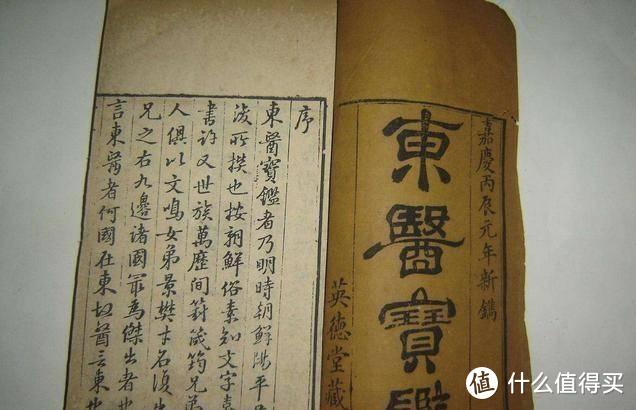 嘉慶丙辰元年新鐫
東醫寶鑑
英德堂藏
序
東醫寶鑑者乃明時朝鮮陽平
浚所撰也按朝鮮俗素知文字
書許又世族萬歷間篈筬筠兄弟
人俱以文鳴女弟景樊才名復出
兄之右九邊諸國㝡爲傑出者也
言東醫者何國在東故醫言東也
值 什么值得买